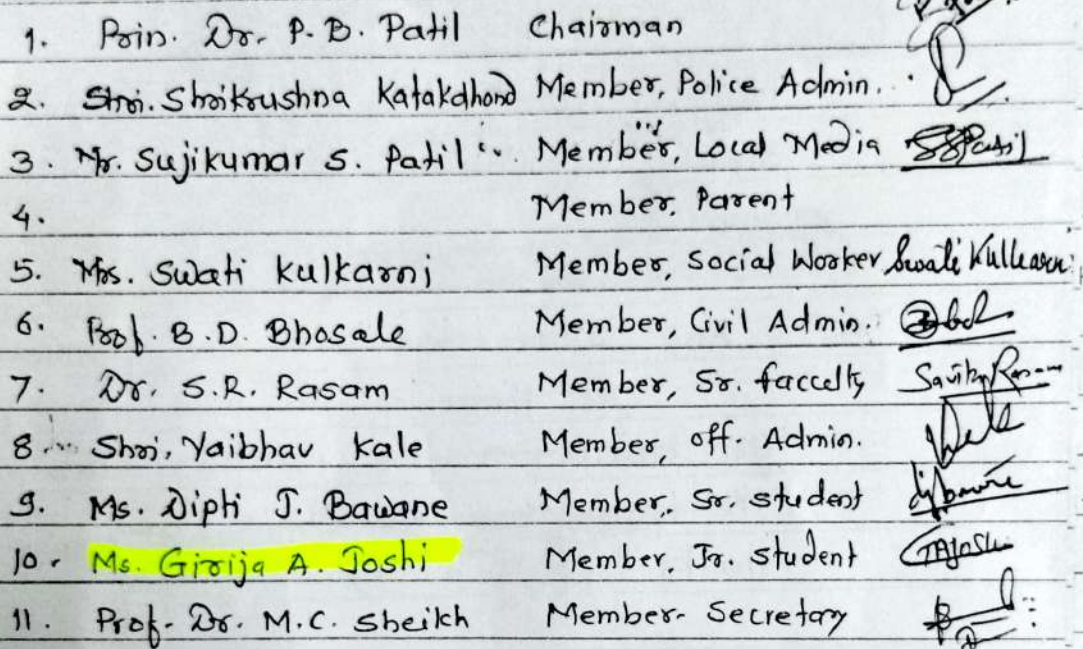 1. Prin. Dr. P. B. Patil Chairman
2. Shri. Shrikrushna Katakdhond Member, Police Admin.
3. Mr. Sujikumar S. Patil Member, Local Media SSPatil
4. Member, Parent
5. Mrs. Swati Kulkarni Member, Social Worker Swati Kulkarni
6. Prof. B.D. Bhosale Member, Civil Admin.
7. Dr. S.R. Rasam Member, Sr. faculty Savita Rasam
8. Shri. Vaibhav Kale Member, off. Admin.
9. Ms. Dipti J. Bawane Member, Sr. student
10. Ms. Girija A. Joshi Member, Jr. student GAJoshi
11. Prof. Dr. M.C. Sheikh Member-Secretary